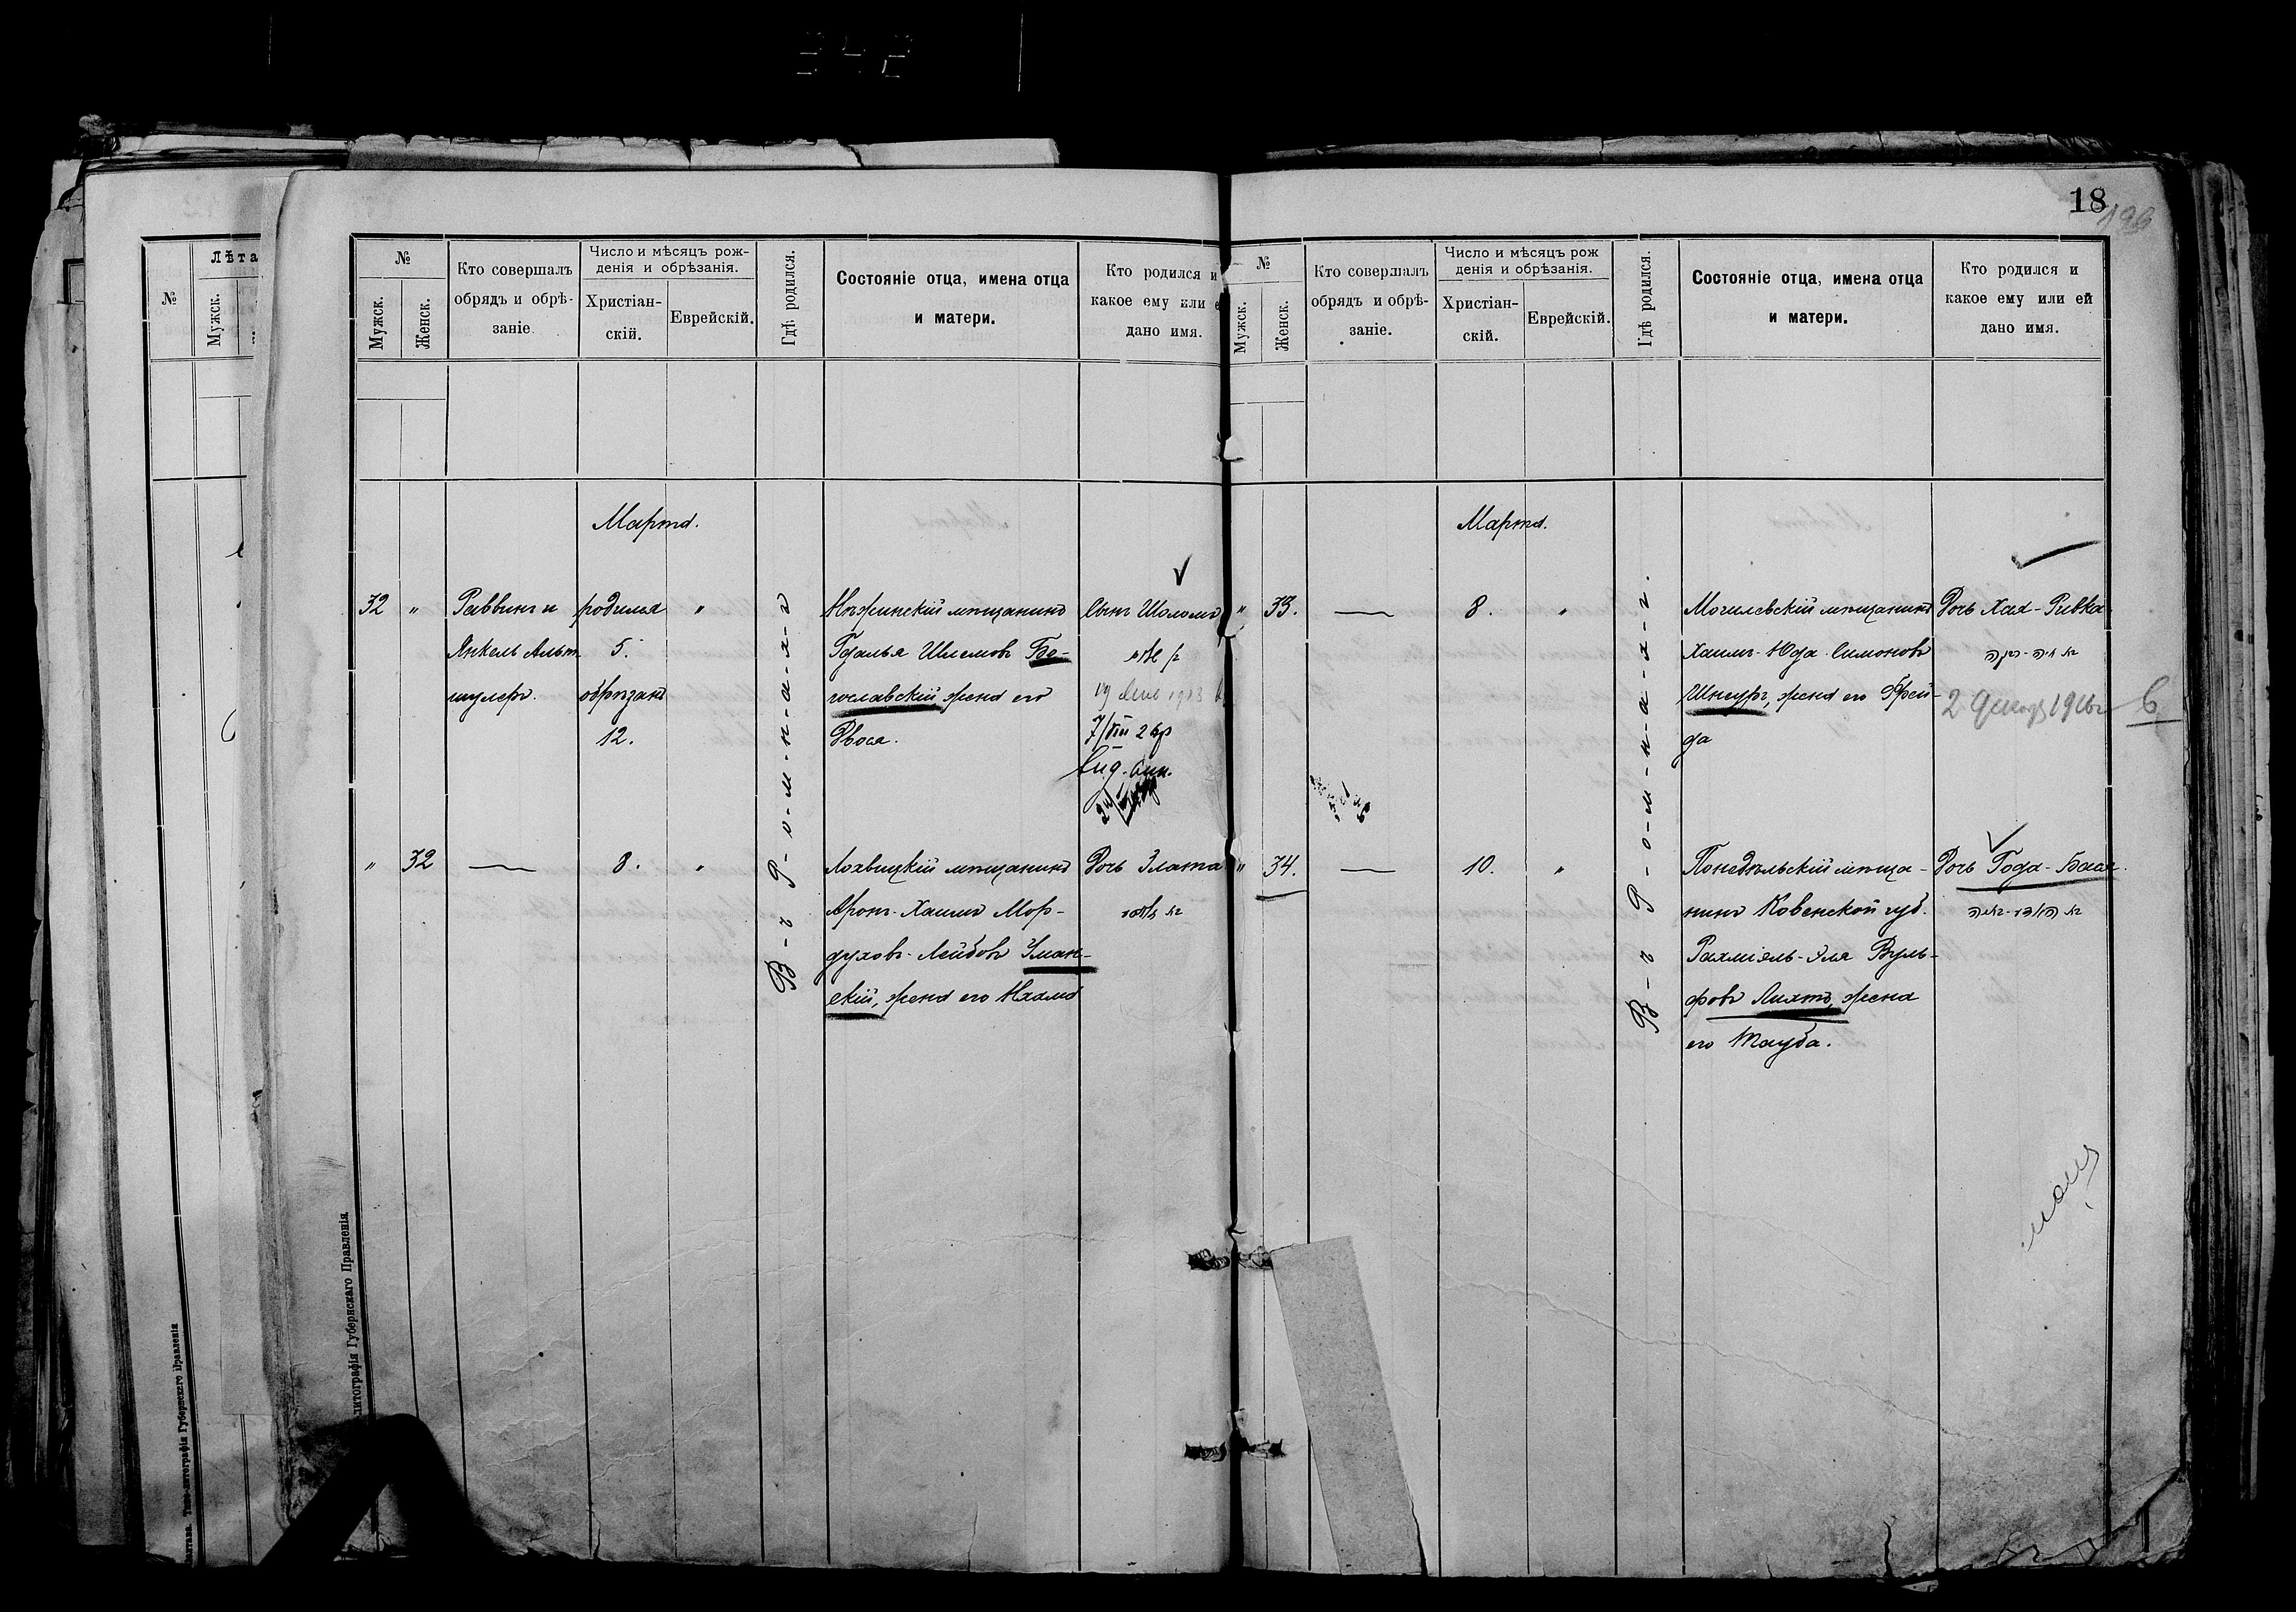 18
196
№
Лѣта
Мужск.
№
Мужск.
Женск.
Кто совершалъ
обрядъ и обрѣ-
заніе.
Число и мѣсяцъ рож-
денія и обрѣзанія.
Христіан-
скій.
Еврейскій.
Гдѣ родился.
Состояніе отца, имена отца
и матери.
Кто родился и
какое ему или е
дано имя.
Марта.
32 " Раввинъ и родился "
Янкель Альт- 5.
шулеръ. обрѣзанъ
12.
Въ Р-о-м-н-а-х-ъ
Нѣжинскій мѣщанинъ
Гдалья Шлемовъ Бо-
гославскій, жена его
Двося.
Сынъ Шоломъ
7/VIII 2 кр
" 32 — 8. "
Лохвицкій мѣщанинъ
Аронъ-Хаимъ Мор-
духовъ-Лейбовъ Уман-
скій, жена его Нхама
Дочь Злата
בת זלאטא
№
Мужск.
Женск.
Кто совершалъ
обрядъ и обрѣ-
заніе.
Число и мѣсяцъ рож
денія и обрѣзанія.
Христіан-
скій.
Еврейскій.
Гдѣ родился.
Состояніе отца, имена отца
и матери.
Кто родился и
какое ему или ей
дано имя.
Марта.
" 33. — 8. "
В-ъ Р-о-м-н-а-х-ъ.
Могилевскій мѣщанинъ
Хаимъ-Юда Симоновъ
Шнеуръ, жена его Фрей-
да
Дочь Хая-Ривка
בת חיה-רבקה
" 34. — 10. "
Понедѣльскій мѣща-
нинъ Ковенской губ.
Рахміэль-Эля Вуль-
фовъ Лихтъ, жена
его Тауба.
Дочь Года-Бася.
בת האדי-באסיה
литографія Губернскаго Правленія
Полтава. Типо-литографія Губернскаго Правленія